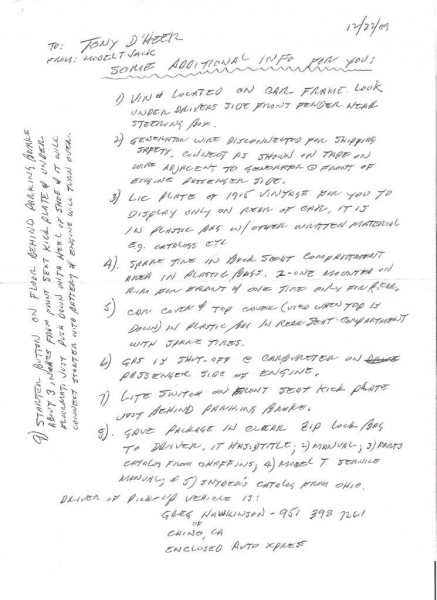 12/22/09
TO: TONY D'HEER
FROM: MODEL T JACK
SOME ADDITIONAL INFO FOR YOU:
1) VIN# LOCATED ON CAR FRAME. LOOK
UNDER DRIVERS SIDE FRONT FENDER NEAR
STEERING BOX.
2) GENERATOR WIRE DISCONNECTED FOR SHIPPING
SAFETY. CONNECT AS SHOWN ON TAPE ON
WIRE ADJACENT TO GENERATOR @ FRONT OF
ENGINE PASSENGER SIDE.
3) LIC PLATE OF 1915 VINTAGE FOR YOU TO
DISPLAY ONLY ON REAR OF CAR. IT IS
IN PLASTIC BAG W/OTHER WRITTEN MATERIAL
EG. CATALOGS ETC
4). SPARE TIRE IN BACK SEAT COMPARTMENT
AREA IN PLASTIC BAGS. 2-ONE MOUNTED ON
RIM FOR FRONT & ONE TIRE ONLY FOR REAR.
5) CAR COVER & TOP COVER (USED WHEN TOP IS
DOWN) IN PLASTIC BAG IN REAR SEAT COMPARTMENT
WITH SPARE TIRES.
6) GAS IS SHUT-OFF @ CARBURETER ON
PASSENGER SIDE OF ENGINE.
7) LITE SWITCH ON FRONT SEAT KICK PLATE
JUST BEHIND PARKING BRAKE.
8). GAVE PACKAGE IN CLEAR ZIP LOCK BAG
TO DRIVER. IT HAS 1) TITLE; 2) MANUAL; 3) PARTS
CATALOG FROM CHAFFINS; 4) MODEL T SERVICE
MANUAL; & 5) SNYDER'S CATALOG FROM OHIO.
DRIVER OF PICK-UP VEHICLE IS:
GREG HAWKINSON - 951 398 7261
OF
CHINO, CA
ENCLOSED AUTO XPRESS
9) STARTER BUTTON ON FLOOR BEHIND PARKING BRAKE
ABOUT 3 INCHES FROM FRONT SEAT KICK PLATE & UNDER
FLOORMAT. JUST PUSH DOWN WITH HEEL OF SHOE & IT WILL
CONNECT STARTER WITH BATTERY & ENGINE WILL TURN OVER.